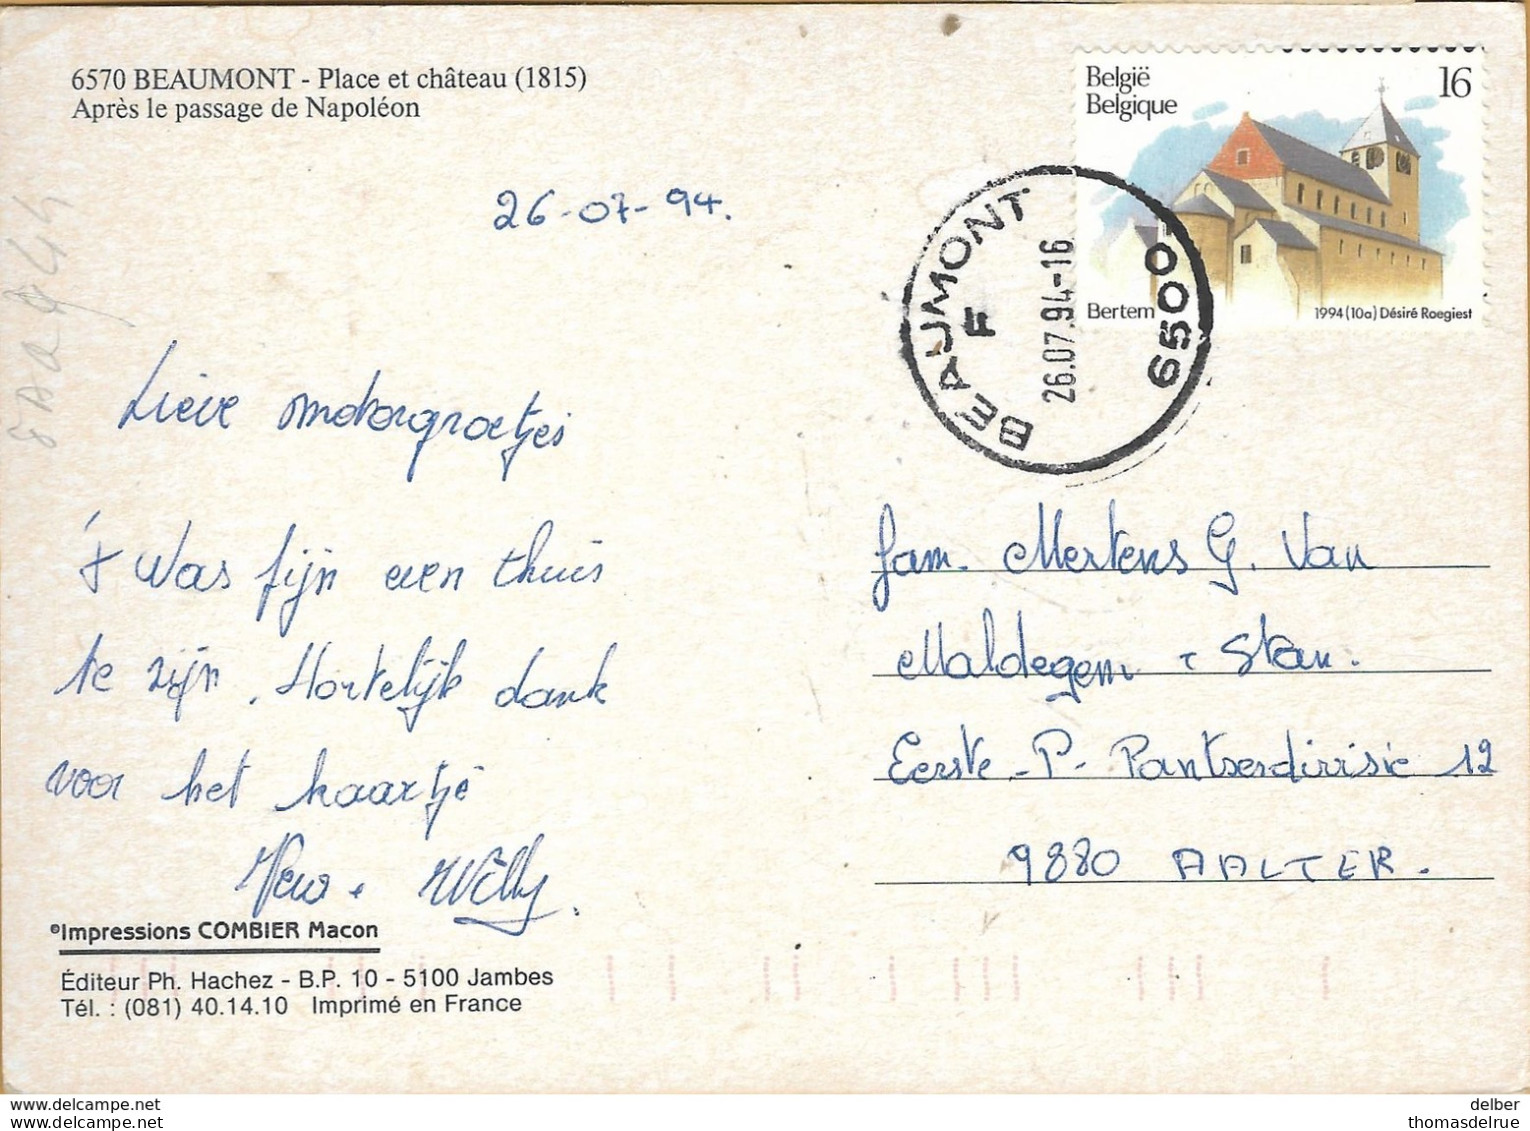 6570 BEAUMONT - Place et château (1815)
Après le passage de Napoléon
België
Belgique
16
Bertem
1994 (10a) Désiré Roegiest
BEAUMONT
F
26.07.94-16
6500
26-07-94.
Lieve motorgroetjes
't was fijn even thuis
te zijn. Hartelijk dank
voor het kaartje
+ Willy.
©Impressions COMBIER Macon
Éditeur Ph. Hachez - B.P. 10 - 5100 Jambes
Tél. : (081) 40.14.10 Imprimé en France
fam. Mertens G. Van
Maldegem + Stan.
Eerste - P. Pantserdivisie 12
9880 AALTER.
delber
thomasdelrue